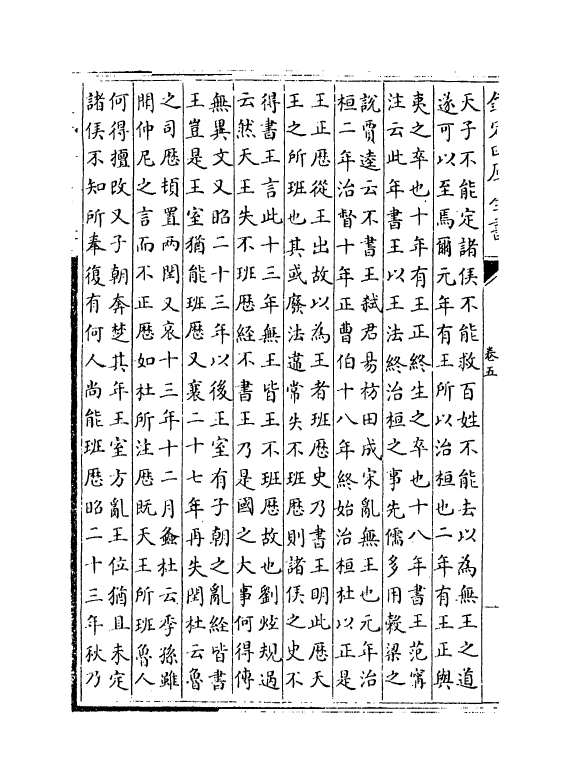 欽定四庫全書
卷五
天子不能定諸侯不能救百姓不能去以為無王之道
遂可以至焉爾元年有王所以治桓也二年有王正與
夷之卒也十年有王正終生之卒也十八年書王范甯
注云此年書王以王法終治桓之事先儒多用穀梁之
說賈逵云不書王弒君易枋田成宋亂無王也元年治
桓二年治督十年正曹伯十八年終始治桓杜以正是
王正歴從王出故以為王者班歴史乃書王明此歴天
王之所班也其或廢法違常失不班歴則諸侯之史不
得書王言此十三年無王皆王不班歴故也劉炫規過
云然天王失不班歴經不書王乃是國之大事何得傳
無異文又昭二十三年以後王室有子朝之亂經皆書
王豈是王室猶能班歴又襄二十七年再失閏杜云魯
之司歴頓置兩閏又哀十三年十二月螽杜云季孫雖
聞仲尼之言而不正歴如杜所注歴既天王所班魯人
何得擅改又子朝奔楚其年王室方亂王位猶且未定
諸侯不知所奉復有何人尚能班歴昭二十三年秋乃